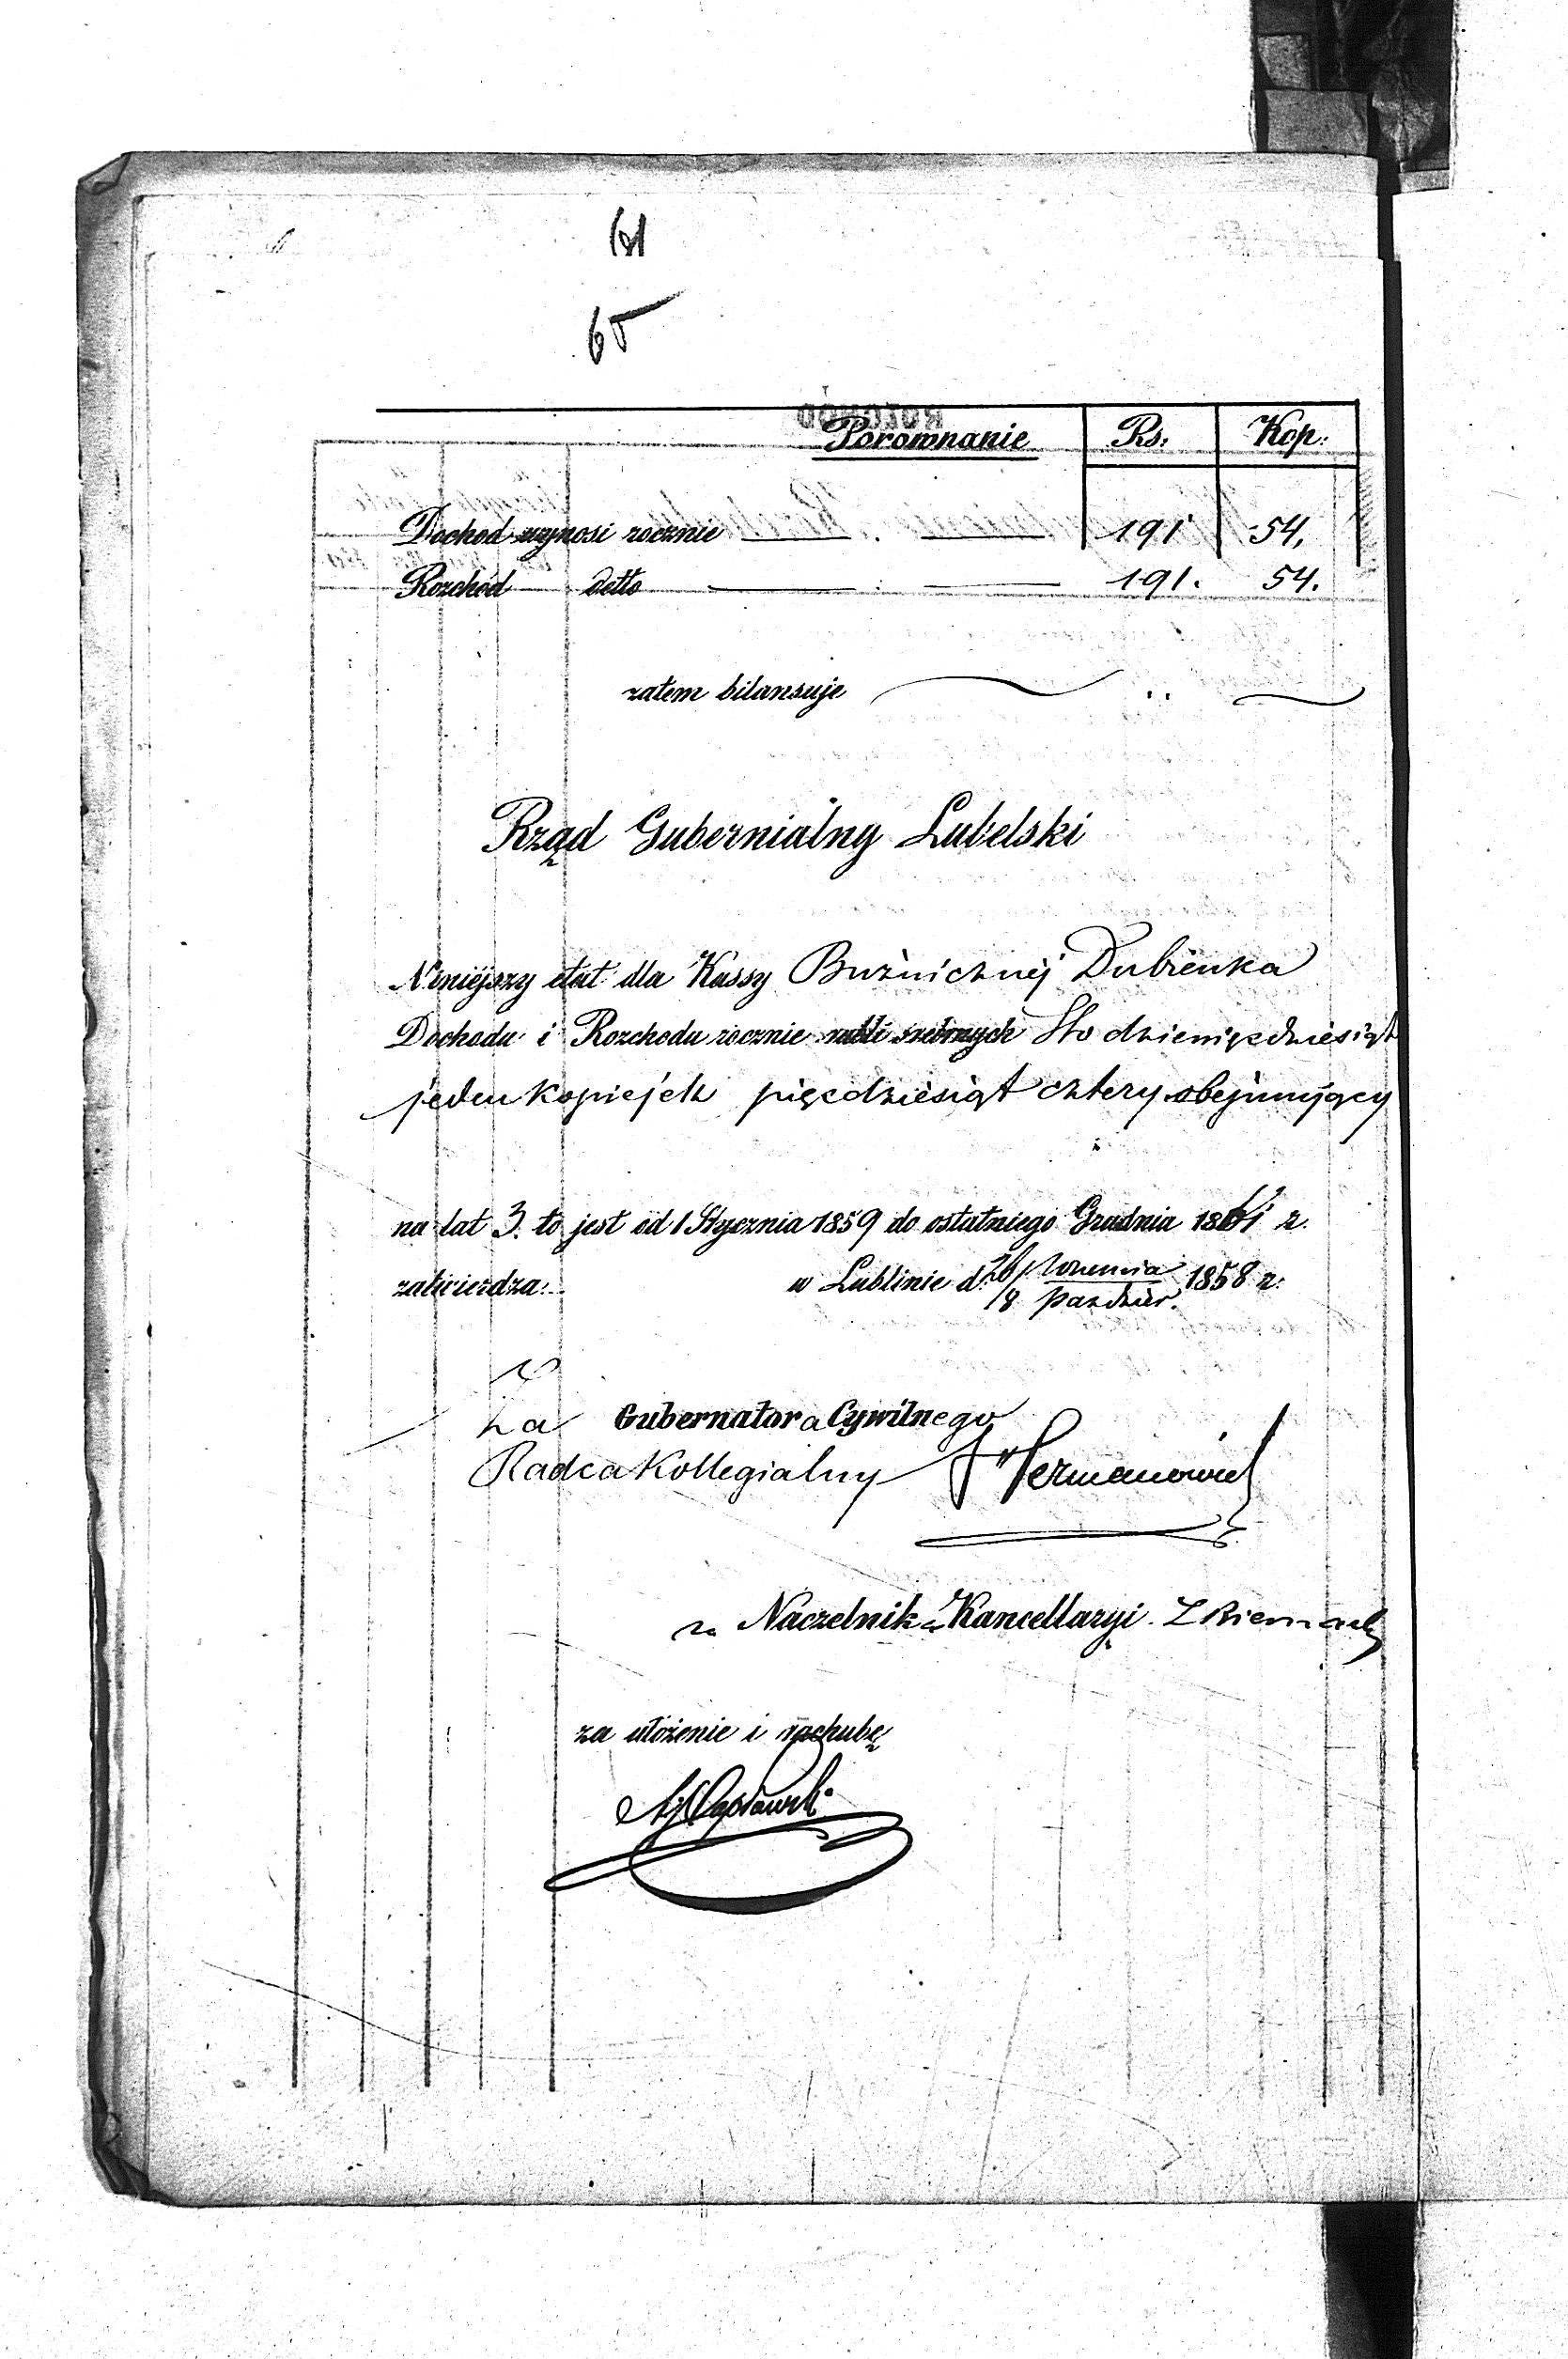 61
65
Porównanie Rs: Kop:
Dochod wynosi rocznie 191 54,
Rozchód detto 191. 54.
zatem bilansuje
Rząd Gubernialny Lubelski
Niniejszy etat dla Kassy Bużnicznéj Dubienka
Dochodu i Rozchodu rocznie rubli srebrnych Sto dziewięćdziesiąt
jeden kopiejek pięćdziesiąt cztery obejmujący
na lat 3. to jest od 1 Stycznia 1859 do ostatniego Grudnia 1861 r.
zatwierdza. w Lublinie d. 26/8 Wrzesnia/Pazdzier. 1858 r.
za Gubernatora Cywilnego
Radca Kollegialny Hermanowicz
za Naczelnika Kancellaryi
za ułożenie i rachubę